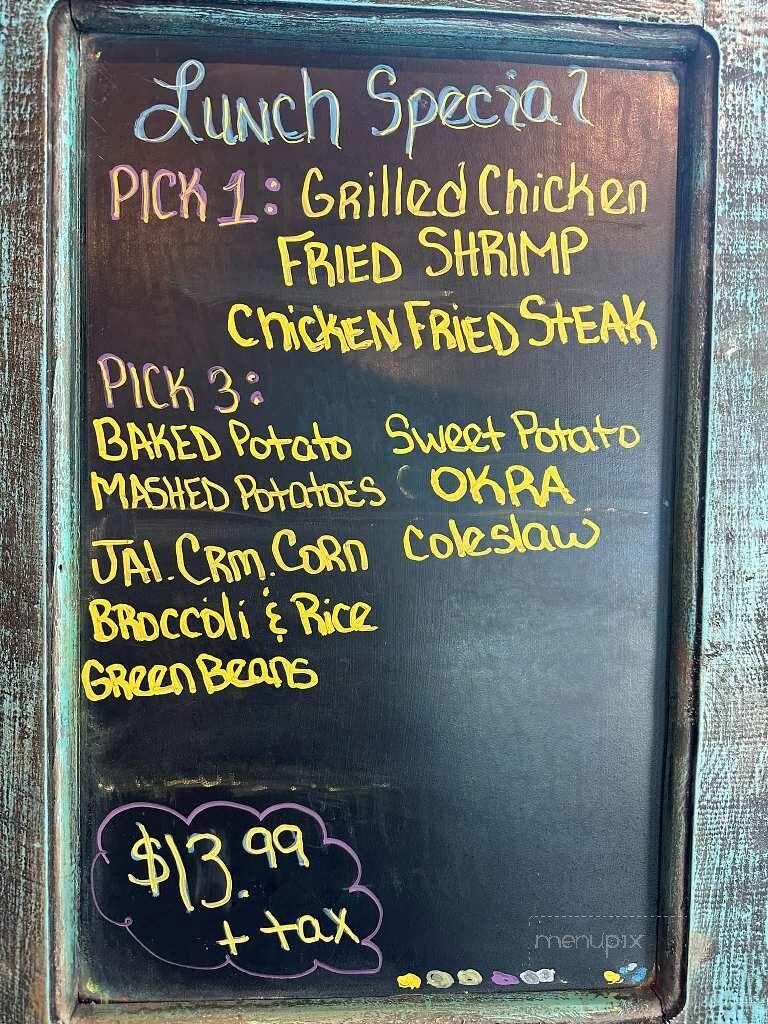 Lunch Special
PICK 1: Grilled Chicken
FRIED SHRIMP
Chicken Fried Steak
PICK 3:
BAKED Potato
MASHED Potatoes
JAl. CRm. CoRn
Broccoli & Rice
Green Beans
Sweet Potato
OKRA
Coleslaw
$13.99
+ tax
menupix